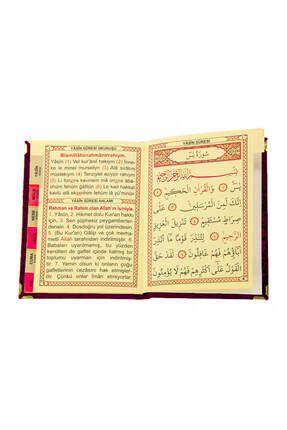 YÂSÎN SÛRESİ OKUNUŞU
Bismillâhirrahmânirrahîym.
Yâsîn (1) Vel kur'ânil hakîym (2) İnne-
ke le minel murselîyn (3) Alâ sırâtın
müstekıym (4) Tenziylel aziyzir rahîym
(5) Li tünzira kavmen mâ ünzira âbâ-
ühüm fehüm gâfilûn (6) Le kad hakkal
kavlü alâ ekserihim fehüm lâ yü'minûn
YÂSÎN SÛRESİ ANLAMI
Rahman ve Rahîm olan Allah'ın ismiyle
1. Yâsîn, 2. Hikmet dolu Kur'an hakkı
için, 3. Sen şüphesiz peygamberlerden-
sin. 4. Dosdoğru yol üzerindesin.
5. (Bu Kur'an) Gâlip ve çok merha-
metli Allah tarafından indirilmiştir. 6.
Babaları uyarılmamış, bu yüzden
kendileri de gaflet içinde kalmış bir
toplumu uyarman için indirilmiş-
tir. 7. Yemin olsun ki onların çoğu
gafletlerinin cezasını hak etmişler-
dir. Çünkü onlar îmân etmiyorlar.
YÂSÎN SÛRESİ
سُورَةُ يٰسٓ
بِسْمِ اللّٰهِ الرَّحْمٰنِ الرَّحِيمِ
يٰسٓ ١ وَالْقُرْاٰنِ الْحَكِيمِ ٢
اِنَّكَ لَمِنَ الْمُرْسَلِينَ ٣ عَلٰى
صِرَاطٍ مُسْتَقِيمٍ ٤ تَنْزِيلَ الْعَزِيزِ
الرَّحِيمِ ٥ لِتُنْذِرَ قَوْمًا مَا اُنْذِرَ
اٰبَاؤُهُمْ فَهُمْ غَافِلُونَ ٦ لَقَدْ حَقَّ
الْقَوْلُ عَلٰى اَكْثَرِهِمْ فَهُمْ لَا يُؤْمِنُونَ